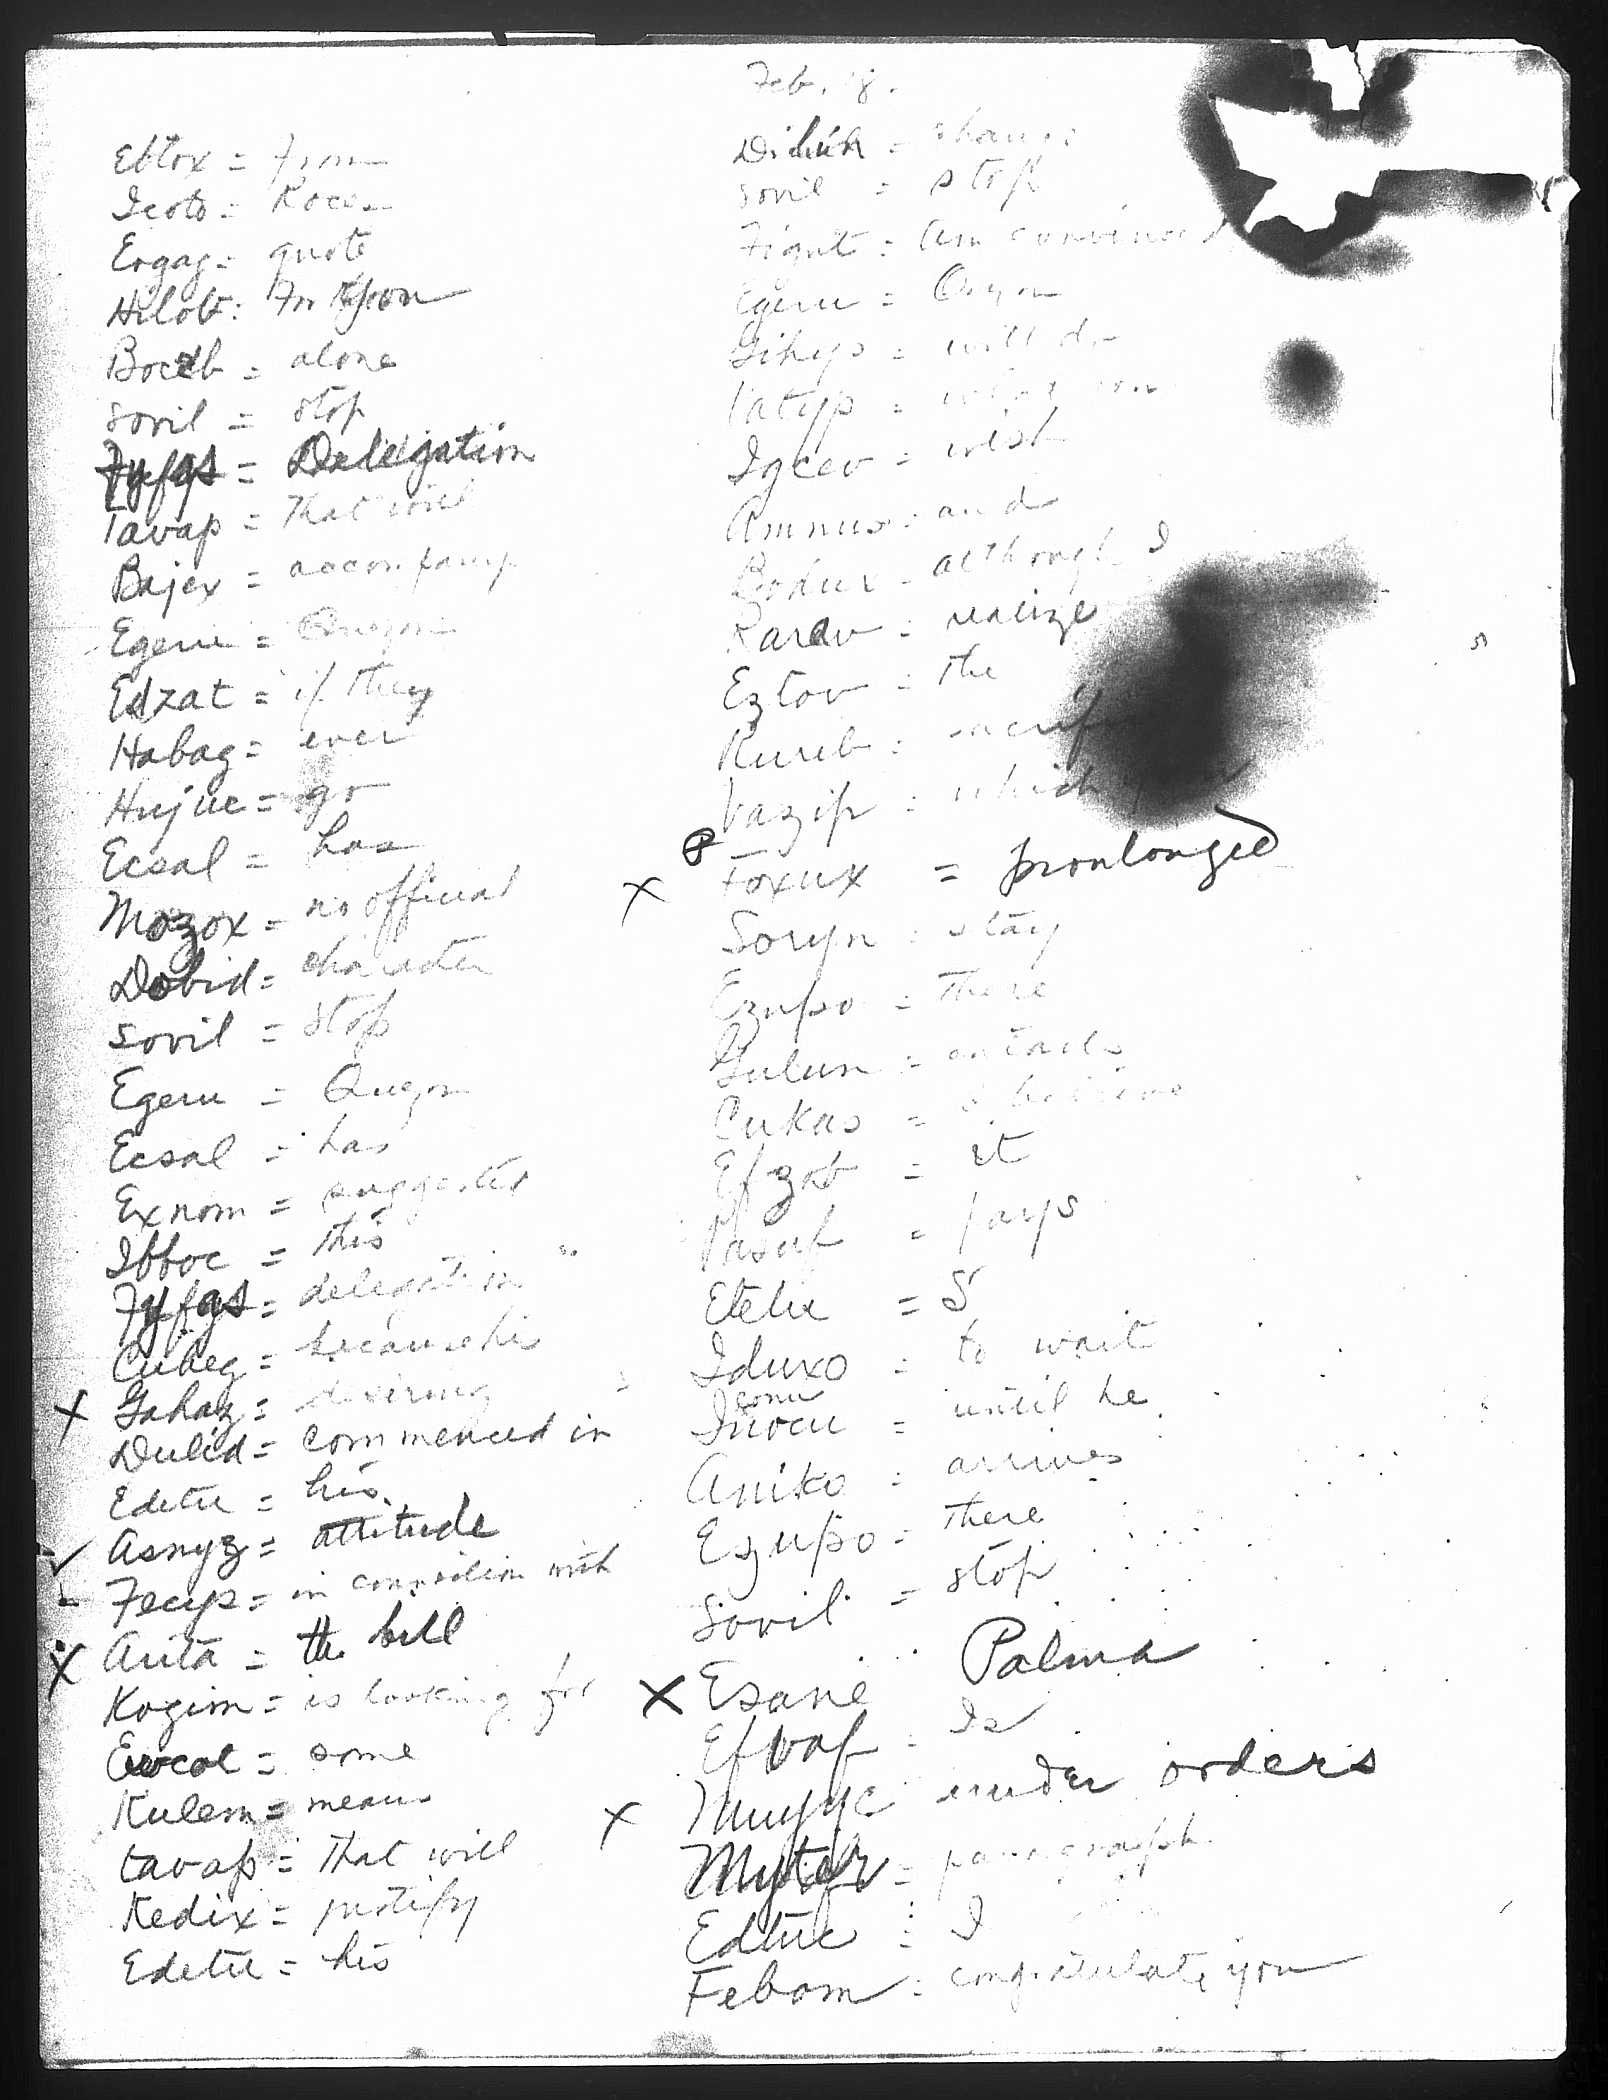 Ebtox = from
Icoto = Roces
Ergag = quote
Hilob: For Kyson
Bocab = alone
sovil = stop
Fyfgs = Delegation
Tavap = That will
Bajex = accompany
Egeru = Quezon
Edzat = if they
Habag = ever
Hujuc = go
Ecsal = has
Mozox = no official
Dobid = character
sovil = stop
Egeru = Quezon
Ecsal = has
Exnom = suggested
Ibboc = this
Fyfgs = delegation
Cubeg = because his
X Gahaz = desiring
Dulid = commenced in
Edetu = his
Asnyz = attitude
Fecyp = in connection with
X Arita = the bill
Kogim = is looking for
Ewcot = some
Kulem = means
tavap = That will
Kedix = justify
Edetu = his
Feb. 18.
Diluh = change
sovil = stop
Fignt = am convinced
Egeru = Quezon
Gihyp = will do
Vatyp = what you
Igcev = wish
Amnus = and
Bodux = although I
Rarav = realize
Eztov = the
Rureb = sacrifice
Vazip = which your
X Foxux = pronlonged
Soryn = stay
Ezupo = there
Gulun = entails
Cukas = I believe
Efzob = it
Pasuf = pays
Etelu = S
Iduxo = to wait
Inocu = until he
Aniko = arrives
Ezupo = there
Sovil = stop
X Esane Palma
Efvaf = Is
X Muyyc under orders
Mytar = paragraph
Edtuc = I
Febom = congratulate you